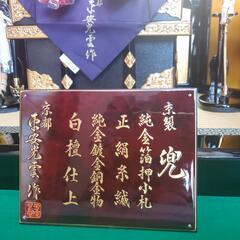 京製
兜
純金箔押小札
正絹糸縅
純金鍍金銅金物
白檀仕上
京都
東安光雲作